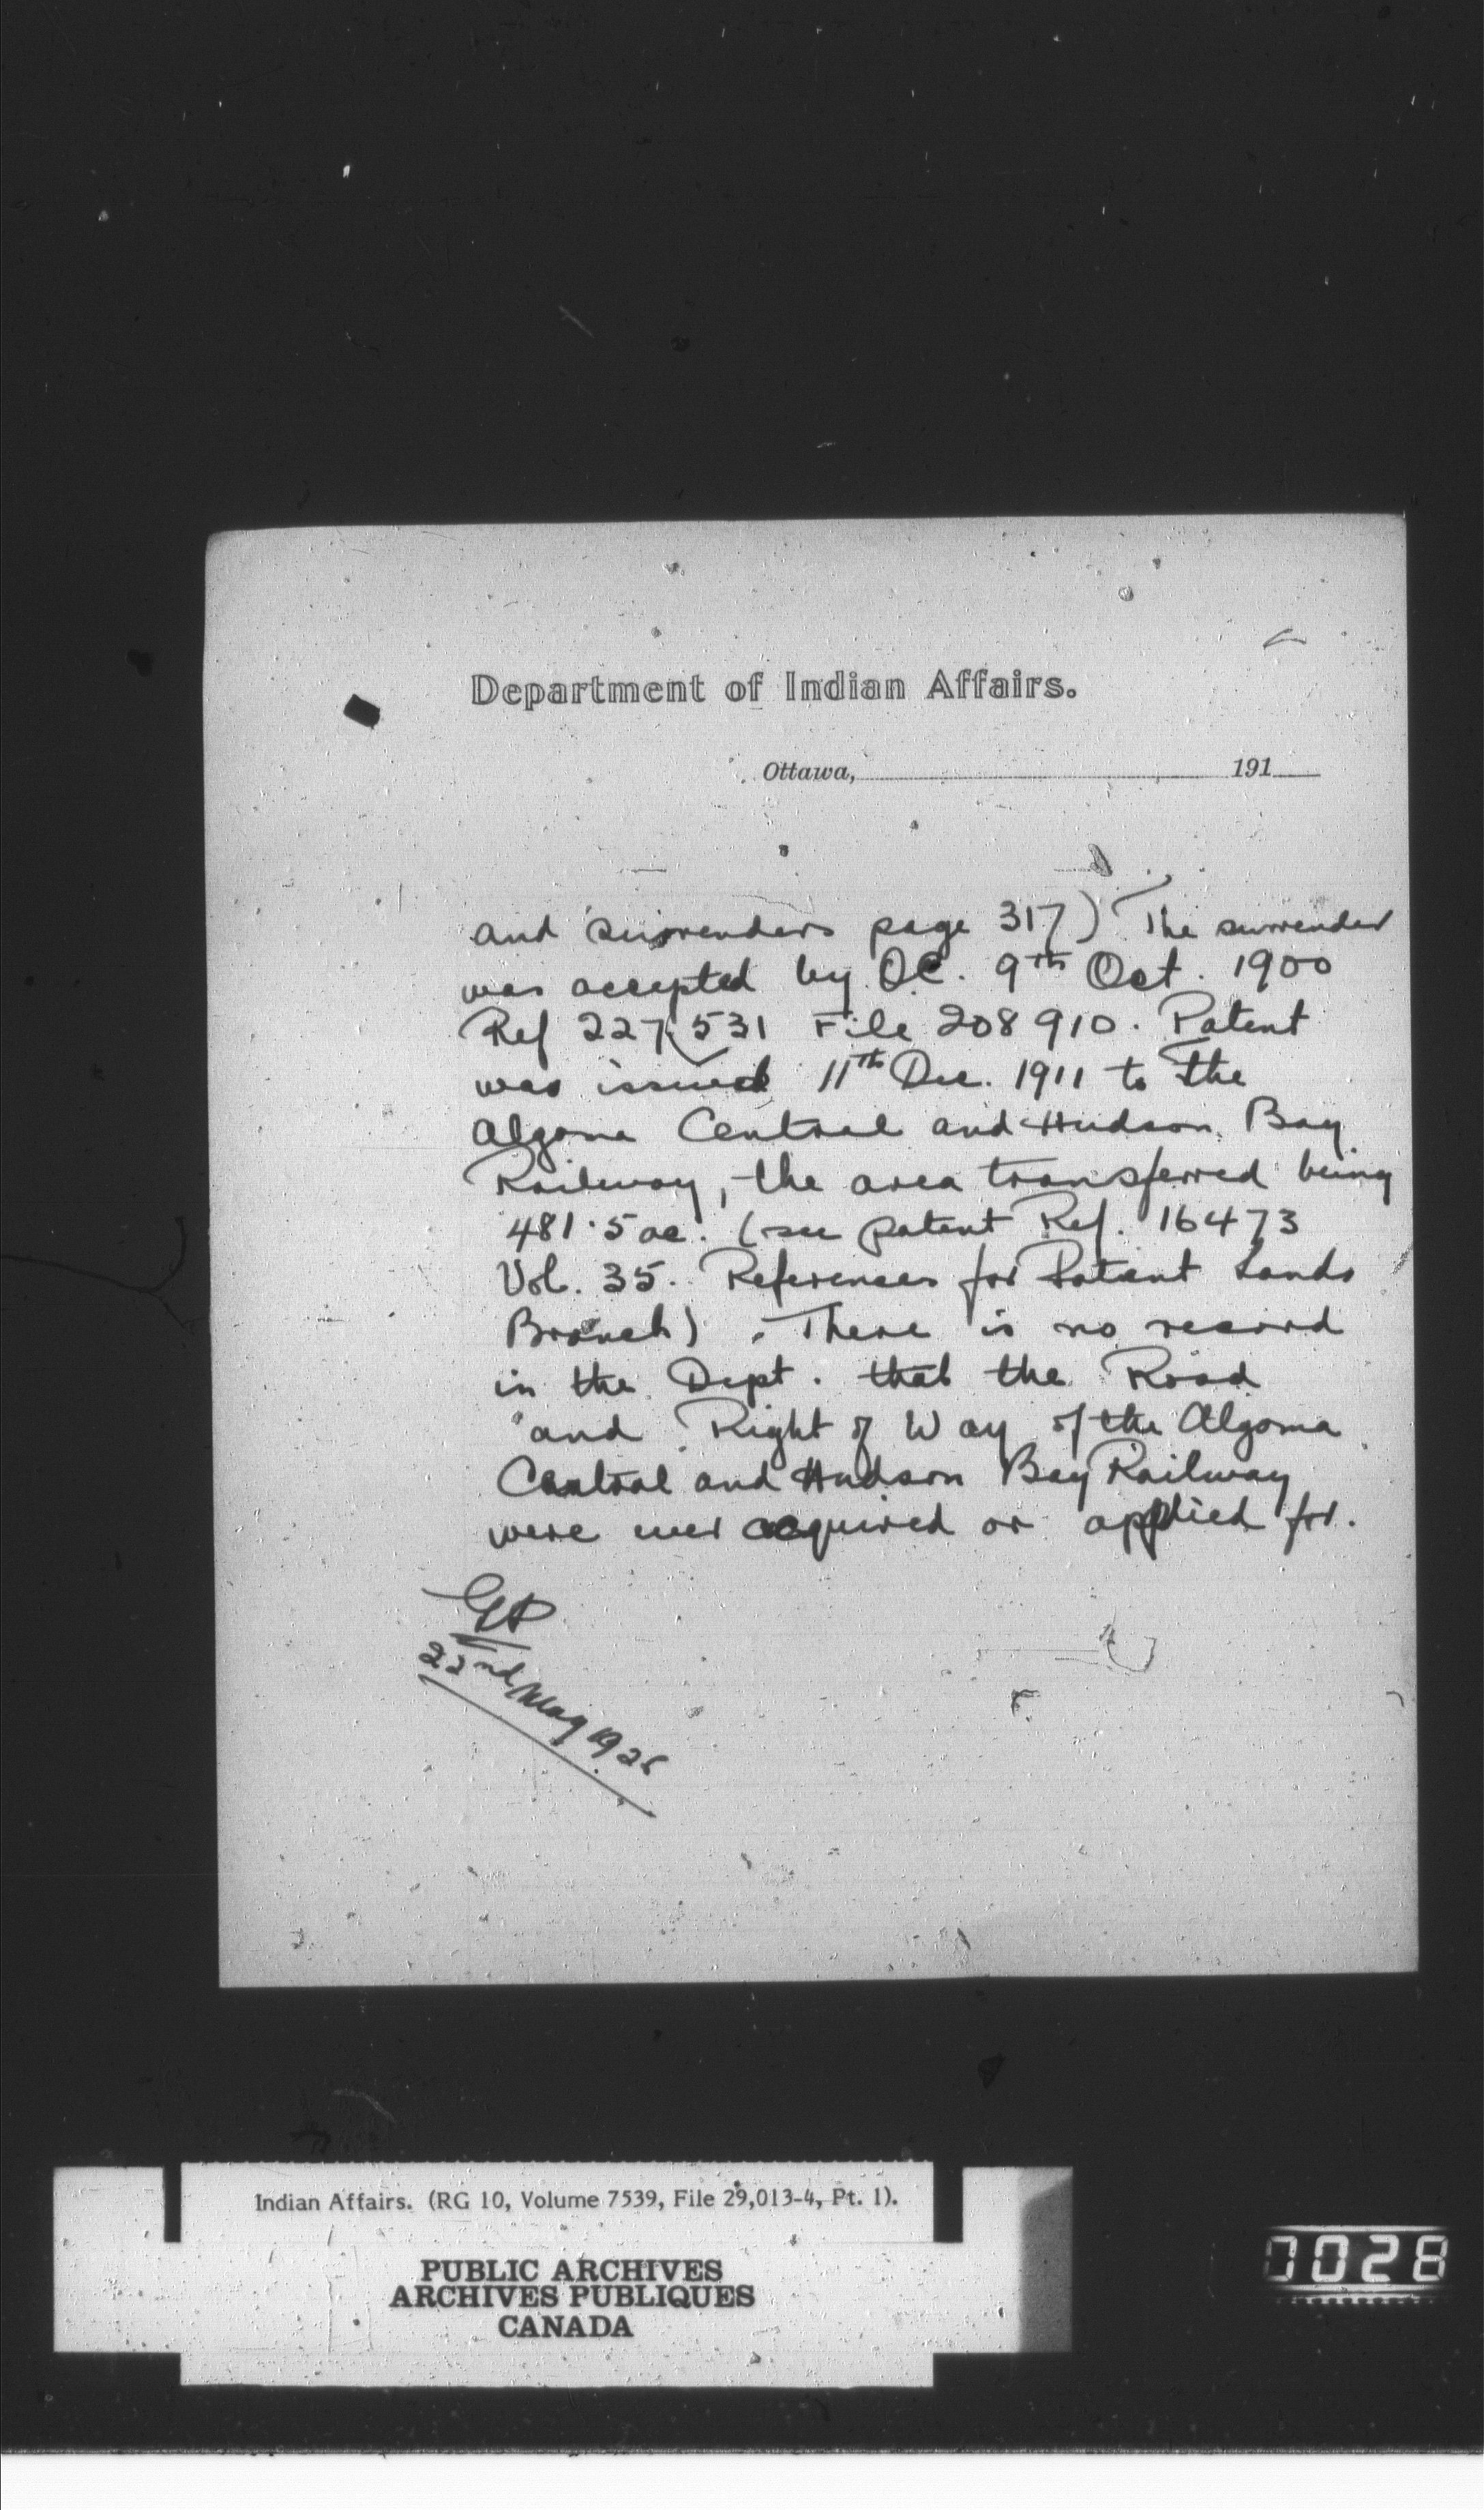 Department of Indian Affairs.
Ottawa, 191
and Surrenders page 317) The surrender
was accepted by OC. 9th Oct. 1900
Ref 227,531 File 208910. Patent
was issued 11th Dec. 1911 to The
Algoma Central and Hudson Bay
Railway, the area transferred being
481.5 ac. (see patent Ref. 16473
Vol. 35. References for Patent Lands
Branch). There is no record
in the Dept. that the Road
and Right of Way of the Algoma
Central and Hudson Bay Railway
were ever acquired or applied for.
22nd May 192
Indian Affairs. (RG 10, Volume 7539, File 29,013-4, Pt. 1).
PUBLIC ARCHIVES
ARCHIVES PUBLIQUES
CANADA
0028